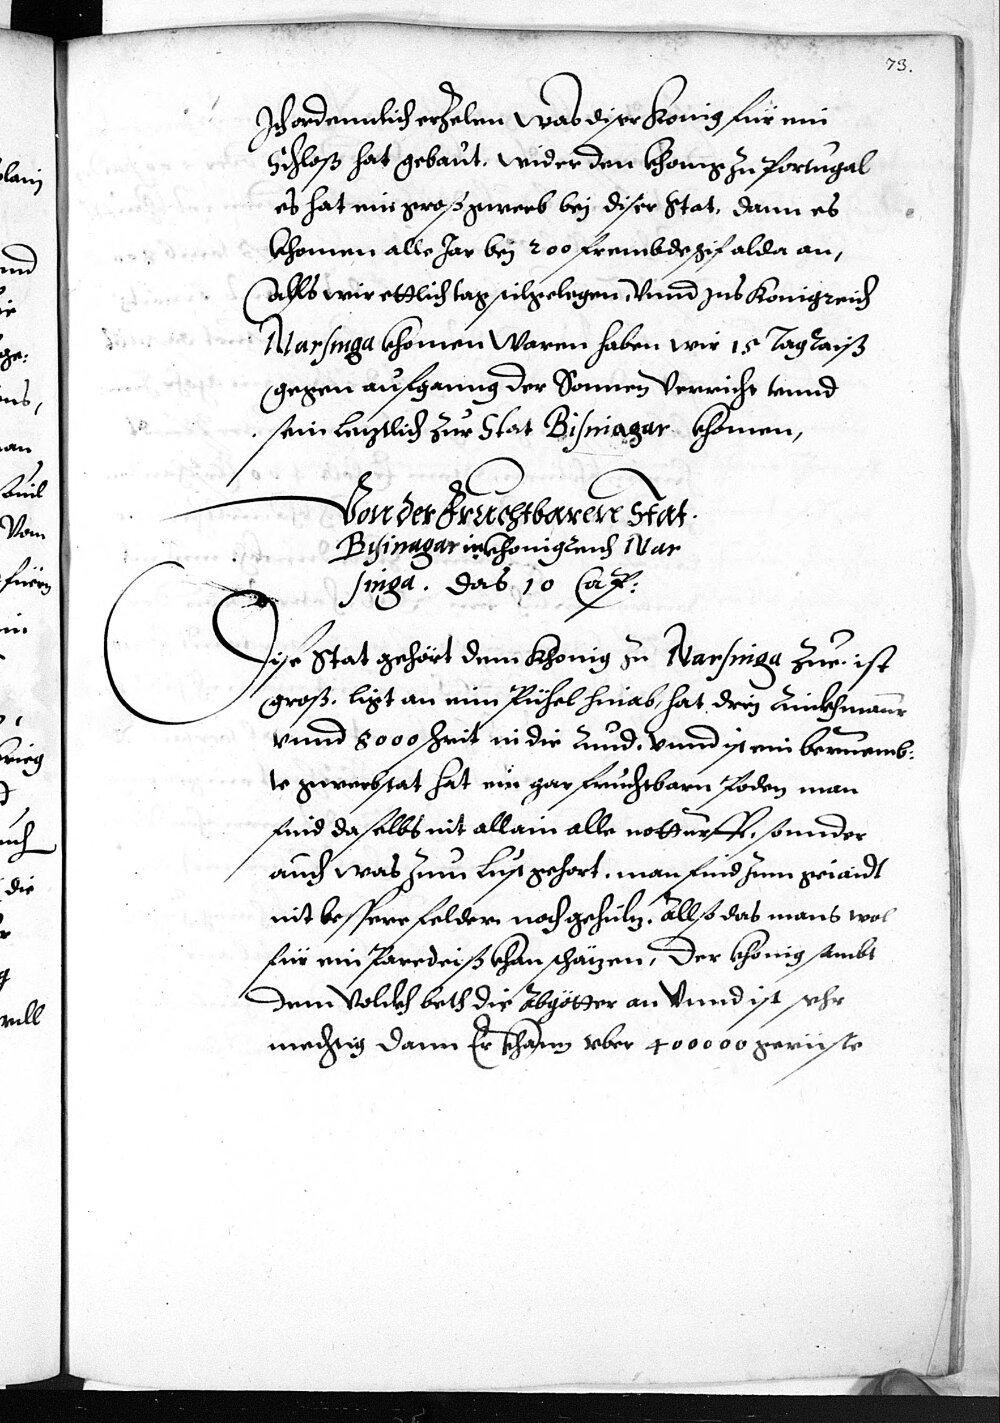 73.
Ich ordennlich erzelen was diser Konig für ein
Schloß hat gebaut. wider den khonig zu Portugal
es hat ein groß gwerb bej diser Stat, dann es
khomen alle Jar bej 200 frembde schif alda an,
Alls wir ettlich tag stilgelegen, Vnnd Ins Konigreich
Narsinga khomen Waren haben wir 15 Tagraiß
gegen aufganng der Sonnen Verricht vnnd
sein letztlich zur Stat Bisinagar khomen,
Von der Fruchtbaren Stat
Bisinagar in khonigreich Nar
singa. das 10 Cap:
Dise Stat gehört dem Khonig zu Narsinga zue. ist
groß. ligt an eim Pühel hinab, hat drej
vnnd 8000 in die vnnd ist ein beruemb-
te gwerbstat hat ein gar fruchtbarn Poden man
find daselbs nit allain alle notturfft, sonnder
auch was zum Lust gehort. man find zum giaidt
nit bessere felder noch gehülz. Allso das mans wol
für ein Paredeiß khan schäzen, Der khönig sambt
dem Volckh beth die Abgötter an Vnnd ist sehr
mechtig dann Er khann vber 400000 gerüste